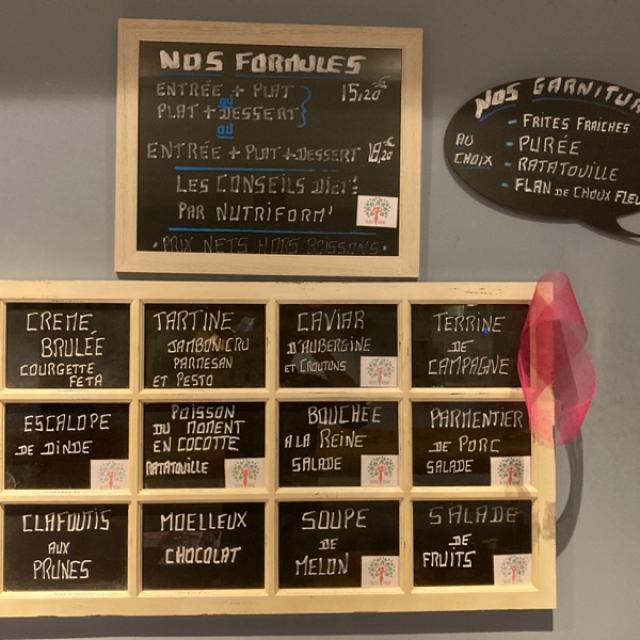 NOS FORMULES
ENTRÉE + PLAT 15,20€
ou
PLAT + DESSERT
ou
ENTRÉE + PLAT + DESSERT 18,20€
LES CONSEILS DIET'
PAR NUTRIFORM'
• PRIX NETS HORS BOISSONS •
NOS GARNITUR
AU CHOIX
- FRITES FRAICHES
- PURÉE
- RATATOUILLE
- FLAN DE CHOUX FLEU
CREME
BRULÉE
COURGETTE
FETA
TARTINE
JAMBON CRU
PARMESAN
ET PESTO
CAVIAR
D'AUBERGINE
ET CROUTONS
TERRINE
DE
CAMPAGNE
ESCALOPE
DE DINDE
POISSON
DU MOMENT
EN COCOTTE
RATATOUILLE
BOUCHÉE
A LA REINE
SALADE
PARMENTIER
DE PORC
SALADE
CLAFOUTIS
AUX
PRUNES
MOELLEUX
CHOCOLAT
SOUPE
DE
MELON
SALADE
DE
FRUITS